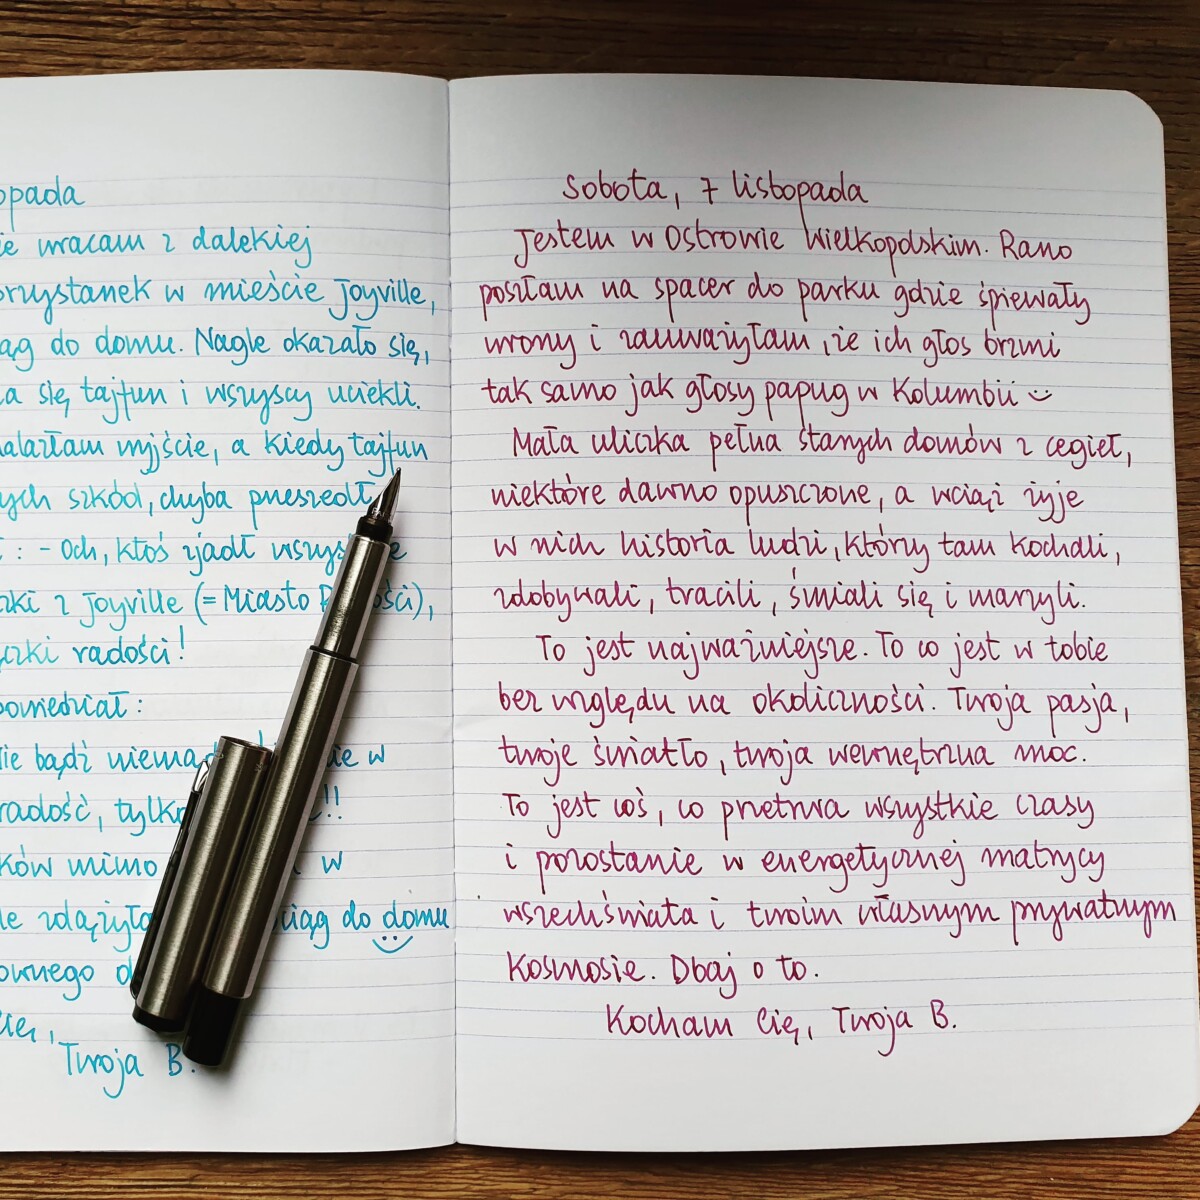 opada
ie wracam z dalekiej
przystanek w mieście Joyville,
ąg do domu. Nagle okazało się,
a się tajfun i wszyscy uciekli.
nalazłam wyjście, a kiedy tajfun
ych szkód, chyba przeszedł
: - Och, ktoś zjadł wszys e
zki z Joyville (= Miasto R ości),
czki radości!
powiedział:
Nie bądź niemą ie w
radość, tylko !!
ków mimo w
le zdążyła ciąg do domu
ownego d
Cię,
Twoja B.
Sobota, 7 listopada
Jestem w Ostrowie Wielkopolskim. Rano
poszłam na spacer do parku gdzie śpiewały
wrony i zauważyłam, że ich głos brzmi
tak samo jak głosy papug w Kolumbii
Mała uliczka pełna starych domów z cegieł,
niektóre dawno opuszczone, a wciąż żyje
w nich historia ludzi, którzy tam kochali,
zdobywali, tracili, śmiali się i marzyli.
To jest najważniejsze. To co jest w tobie
bez względu na okoliczności. Twoja pasja,
twoje światło, twoja wewnętrzna moc.
To jest coś, co przetrwa wszystkie czasy
i pozostanie w energetycznej matrycy
wszechświata i twoim własnym prywatnym
Kosmosie. Dbaj o to.
Kocham Cię, Twoja B.